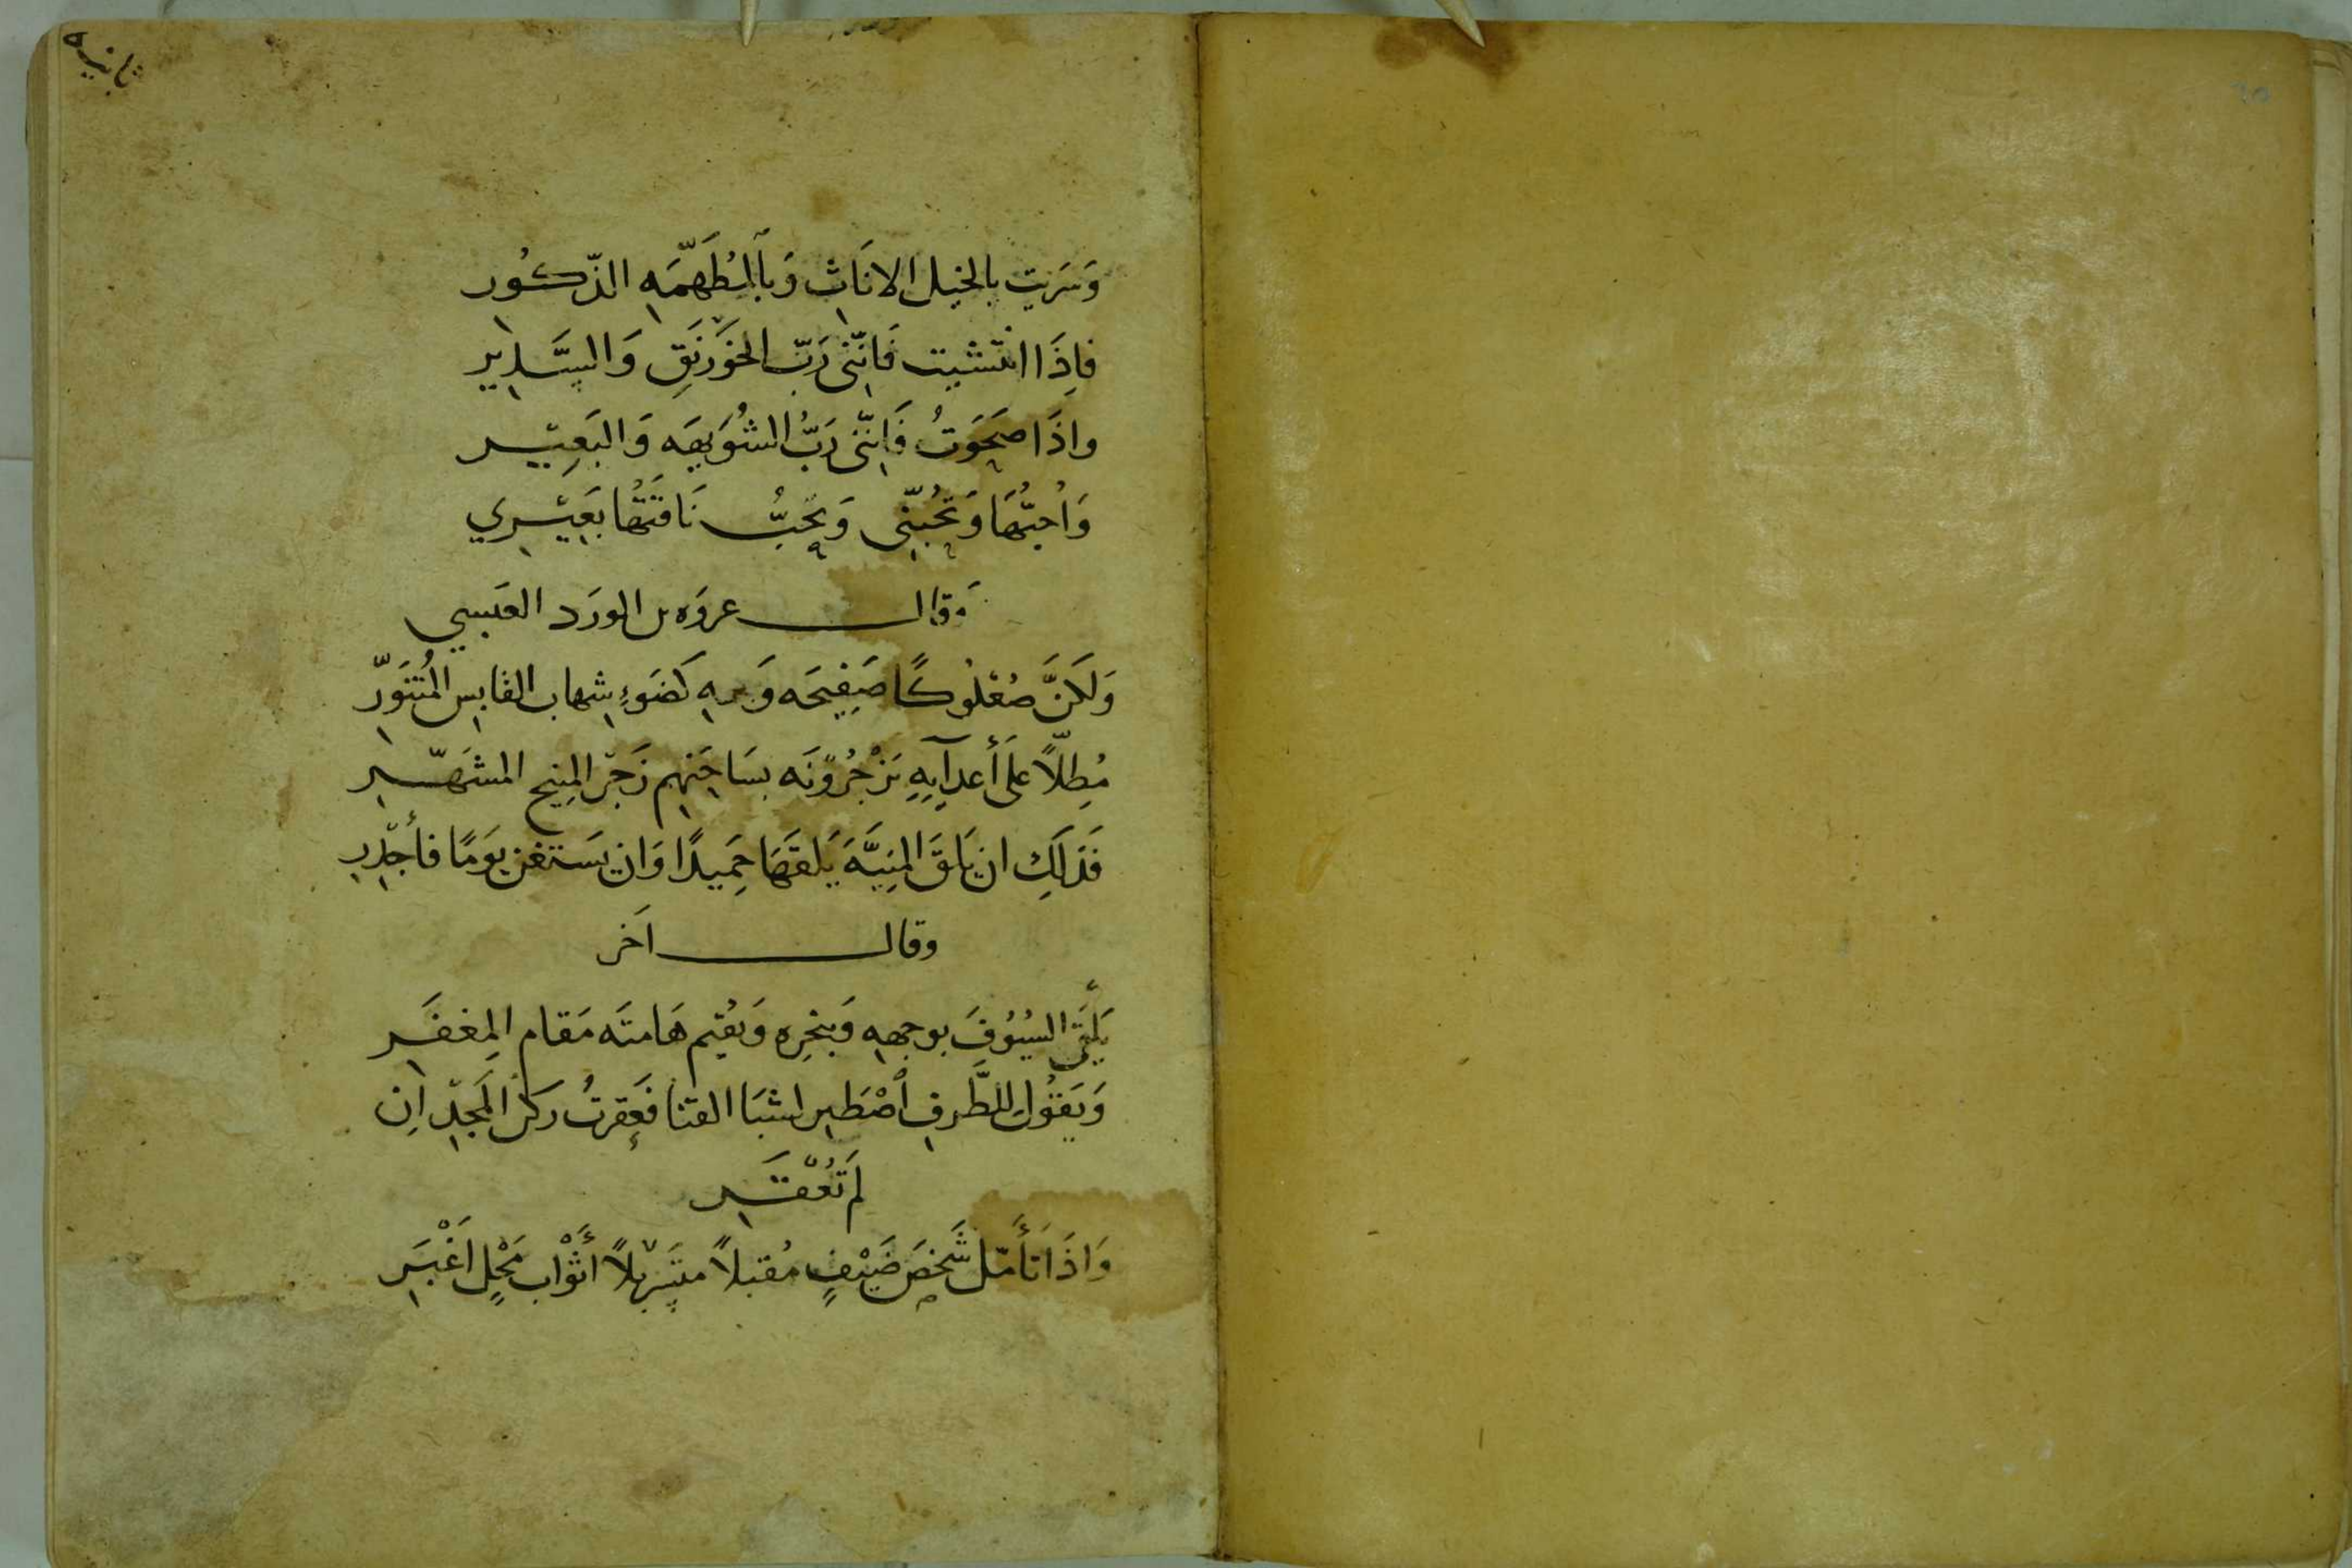 ثانيه
وَسَرَيت بالخيل الانَاثِ وَبِاَلمُطَهَّمَهِ الذّكُورِ
فاِذَا انتَشيت فَاِنّنى رَبّ الخوَرنَقِ وَالسَّدِيرِ
واذَا صَحَوَتُ فَاِنّنى رَبُّ الشُوَيهَه وَالبَعِيْر
وَاُحِبُّهَا وَتُحُبّنِى وَيحِبُّ نَاقَتَهُا بَعِيْرِي
وَقال عروَه بن الورَد العَبسِي
وَلَكنَّ صُعْلوُكًا صَفِيحَه وَجهِهِ كَضَوءِ شِهاب القابِس المُتَنَوّرِ
مُطِلّاً عَلى أَعدآيِهِ يَزْجُرُوُنَه بسَاحَتِهِم زَجَرَ المِنيح المشَهّرِ
فَذلَكِ ان يَلقَ المنِيَّهَ يَلقَهَا حَمِيدًا وَان يَستغن يوَمًا فأَجْدِرِ
وقال اَخر
يَلَقَى السيُوُفَ بوجهِهِ وَبنحرِهِ وَيُقيم هَامتَه مَقام المِغفَرِ
وَيَقوُل للطَّرفِ اَصْطَبِر لشبَا القنا فَعقِرتُ ركن المَجدِ اِن
لَم تُعْقَرِ
وَاذَا تَأَمّل شَخصَ ضَيْفٍ مُقبلاً متسَربلاً أَثْواب مَحْلٍ اَغْبَرِ